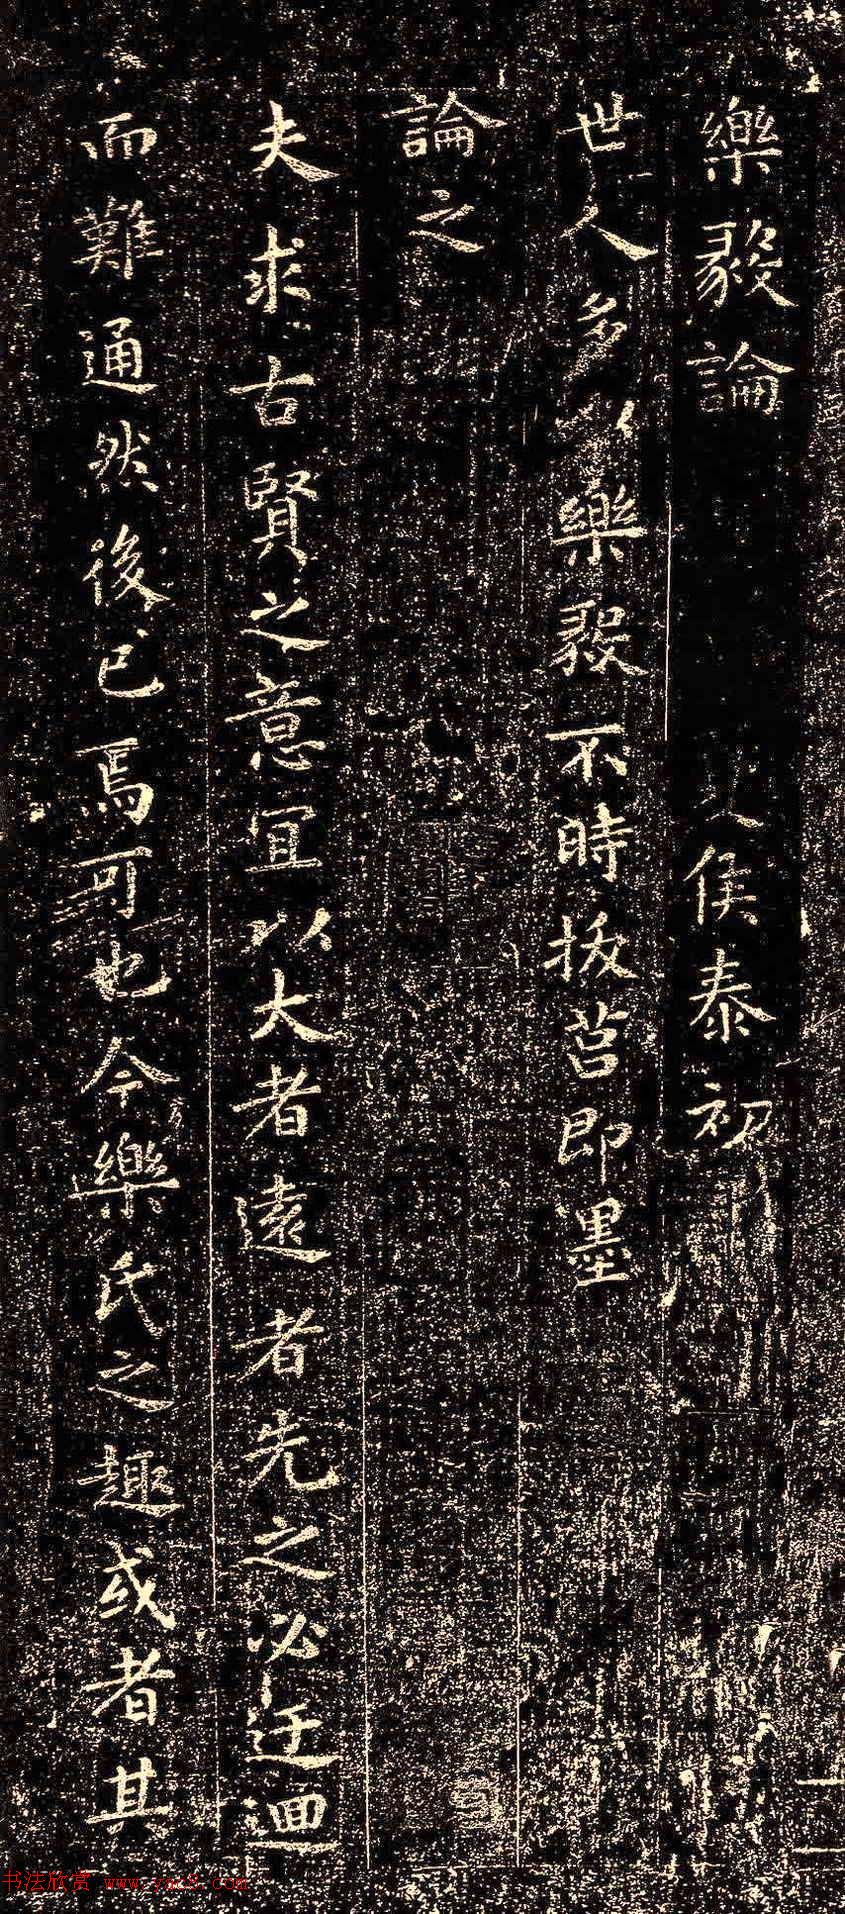 樂毅論 侯泰初
世人多以樂毅不時拔莒即墨
論之
夫求古賢之意宜以大者遠者先之必迂迴
而難通然後已焉可也今樂氏之趣或者其
书法欣赏 www.yac8.com